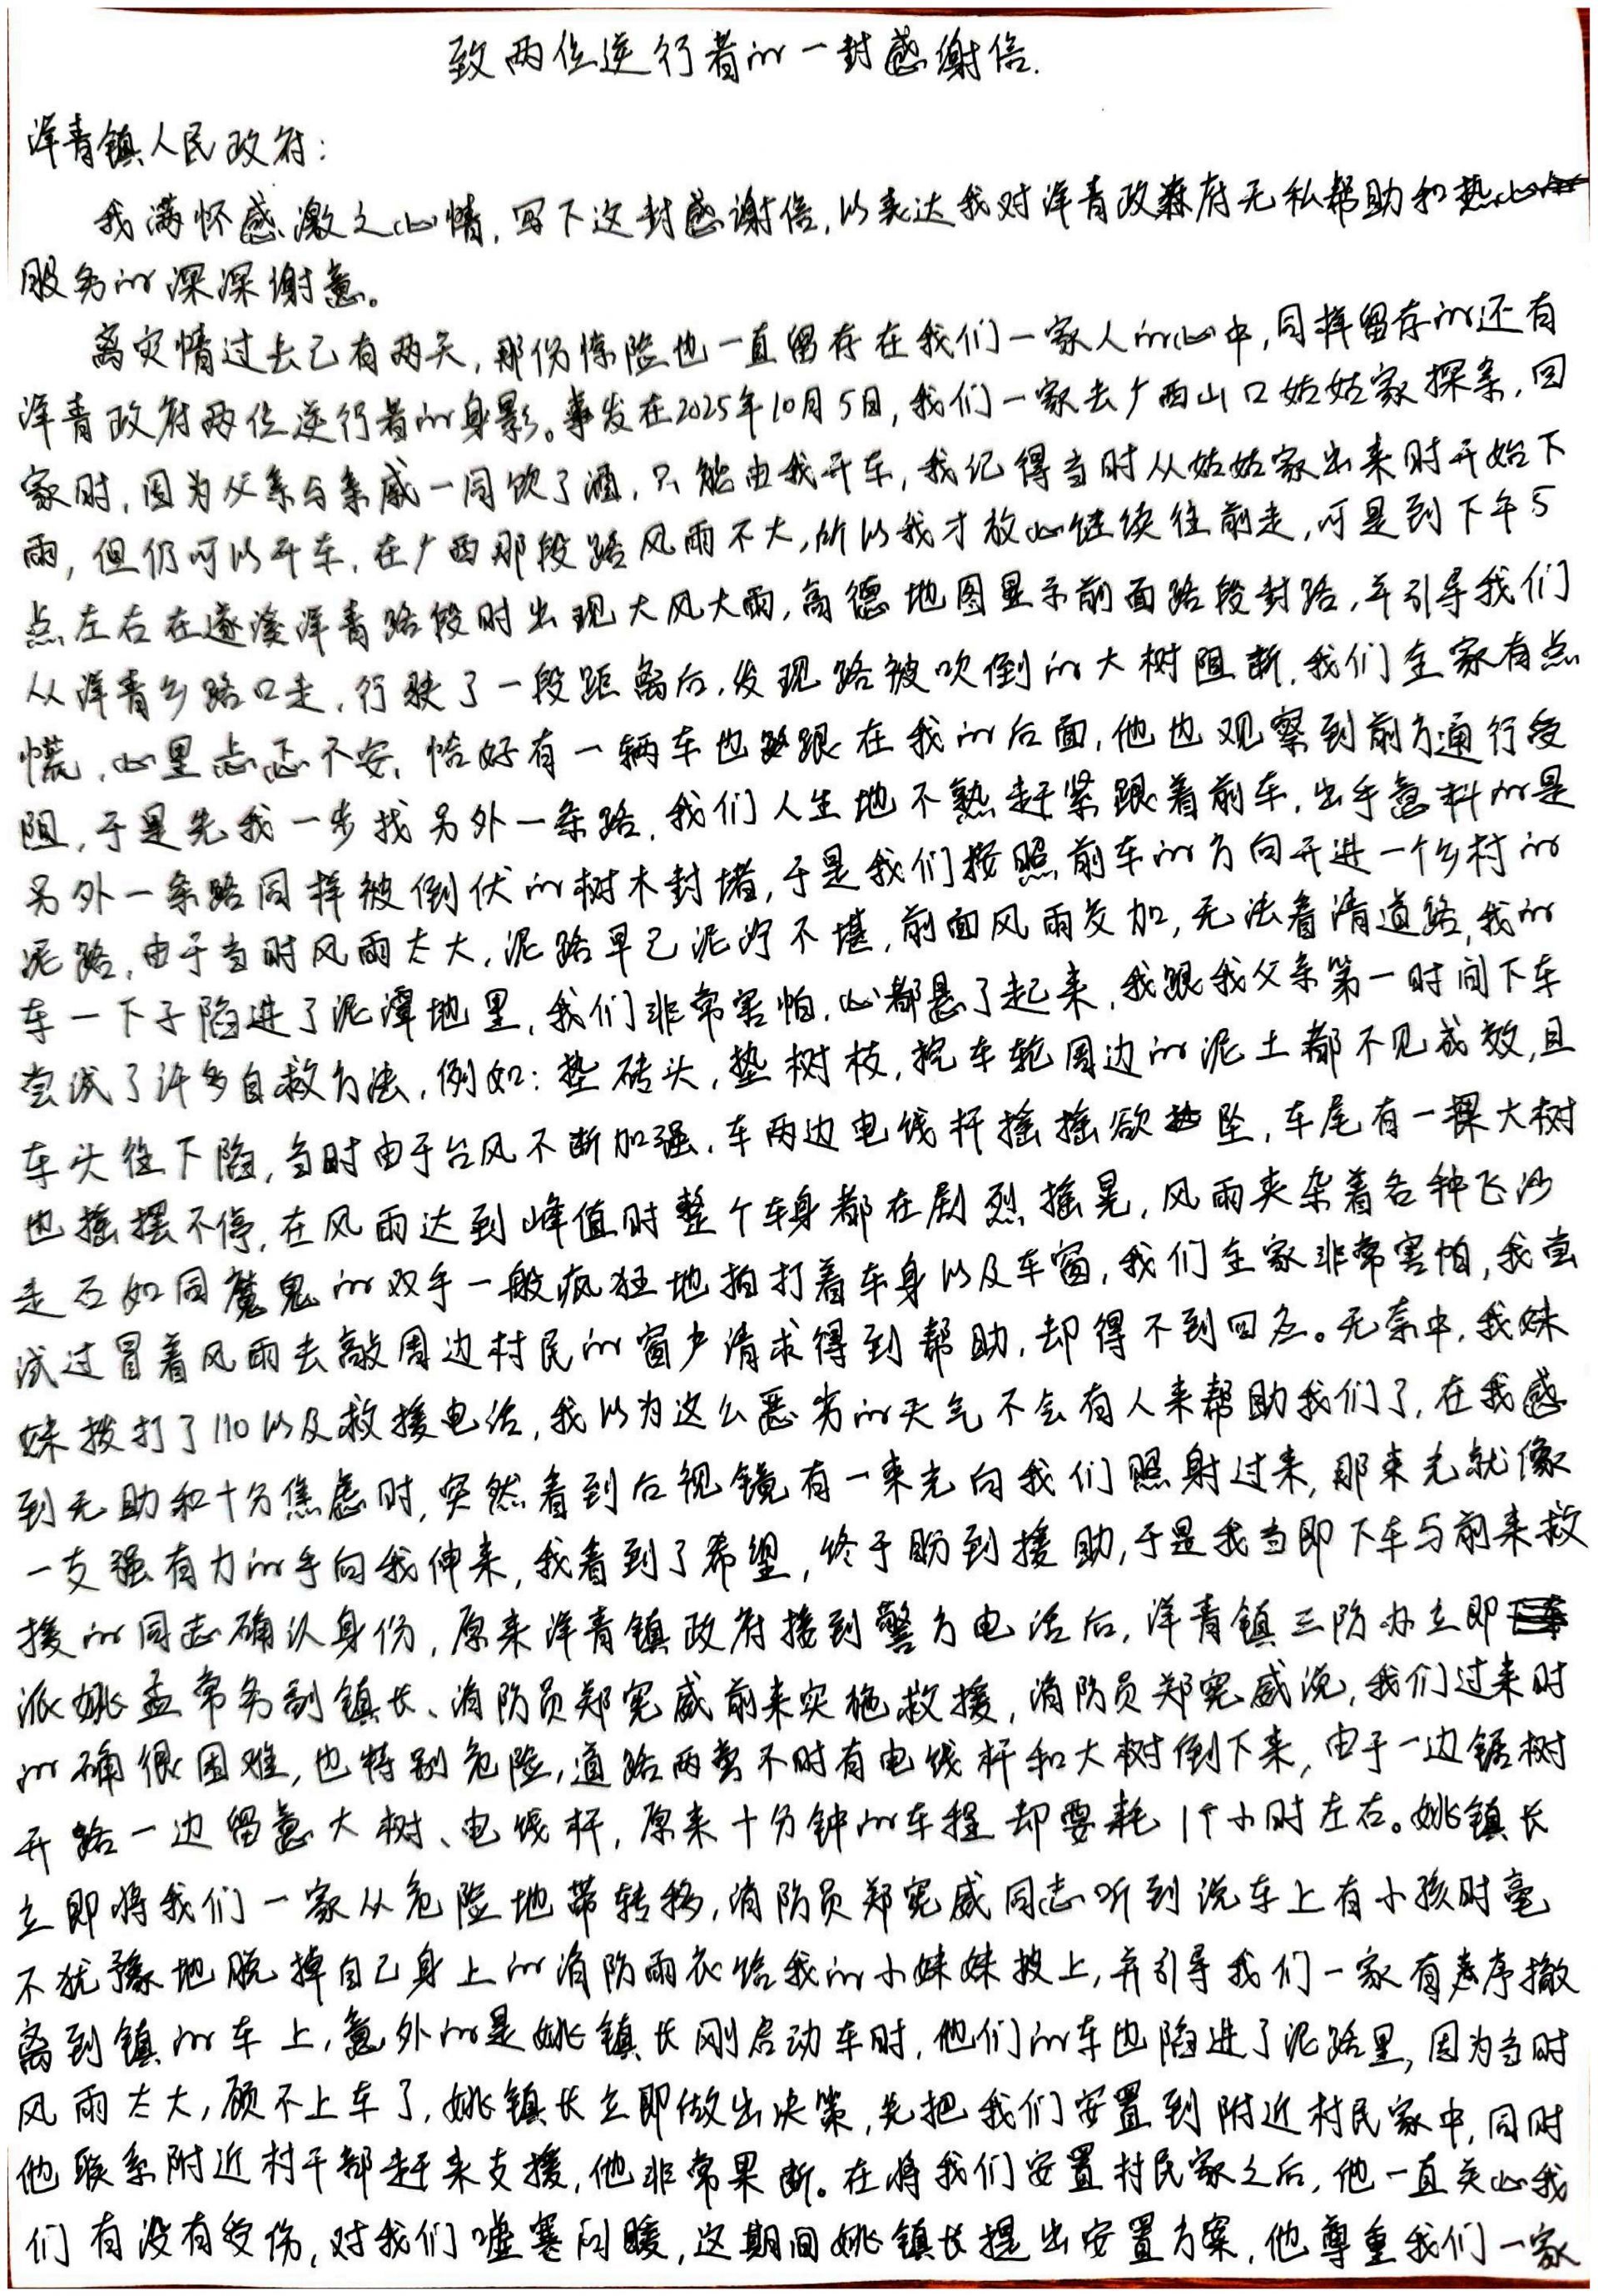 致两位逆行者的一封感谢信.
洋青镇人民政府:
我满怀感激之心情,写下这封感谢信,以表达我对洋青政府无私帮助和热心
服务的深深谢意。
离灾情过去已有两天,那份惊险也一直留存在我们一家人的心中,同样留存的还有
洋青政府两位逆行者的身影。事发在2025年10月5日,我们一家去广西山口姑姑家探亲,回
家时,因为父亲与亲戚一同饮了酒,只能由我开车,我记得当时从姑姑家出来时开始下
雨,但仍可以开车,在广西那段路风雨不大,所以我才放心继续往前走,可是到下午5
点左右在遂溪洋青路段时出现大风大雨,高德地图显示前面路段封路,并引导我们
从洋青乡路口走,行驶了一段距离后,发现路被吹倒的大树阻断,我们全家有点
慌,心里忐忑不安,恰好有一辆车也跟在我的后面,他也观察到前方通行受
阻,于是先我一步找另外一条路,我们人生地不熟赶紧跟着前车,出乎意料的是
另外一条路同样被倒伏的树木封堵,于是我们按照前车的方向开进一个乡村的
泥路,由于当时风雨太大,泥路早已泥泞不堪,前面风雨交加,无法看清道路,我的
车一下子陷进了泥潭地里,我们非常害怕,心都悬了起来,我跟我父亲第一时间下车
尝试了许多自救方法,例如:垫砖头,垫树枝,挖车轮周边的泥土都不见成效,且
车头往下陷,当时由于台风不断加强,车两边电线杆摇摇欲坠,车尾有一棵大树
也摇摆不停,在风雨达到峰值时整个车身都在剧烈摇晃,风雨夹杂着各种飞沙
走石如同魔鬼的双手一般疯狂地拍打着车身以及车窗,我们全家非常害怕,我尝
试过冒着风雨去敲周边村民的窗户请求得到帮助,却得不到回应。无奈中,我妹
妹拨打了110以及救援电话,我以为这么恶劣的天气不会有人来帮助我们了,在我感
到无助和十分焦虑时,突然看到后视镜有一束光向我们照射过来,那束光就像
一支强有力的手向我伸来,我看到了希望,终于盼到援助,于是我当即下车与前来救
援的同志确认身份,原来洋青镇政府接到警方电话后,洋青镇三防办立即
派姚孟常务副镇长、消防员郑宪威前来实施救援,消防员郑宪威说,我们过来时
的确很困难,也特别危险,道路两旁不时有电线杆和大树倒下来,由于一边锯树
开路一边留意大树、电线杆,原来十分钟的车程却要耗1个小时左右。姚镇长
立即将我们一家从危险地带转移,消防员郑宪威同志听到说车上有小孩时毫
不犹豫地脱掉自己身上的消防雨衣给我的小妹妹披上,并引导我们一家有序撤
离到镇的车上,意外的是姚镇长刚启动车时,他们的车也陷进了泥路里,因为当时
风雨太大,顾不上车了,姚镇长立即做出决策,先把我们安置到附近村民家中,同时
他联系附近村干部赶来支援,他非常果断。在将我们安置村民家之后,他一直关心我
们有没有受伤,对我们嘘寒问暖,这期间姚镇长提出安置方案,他尊重我们一家